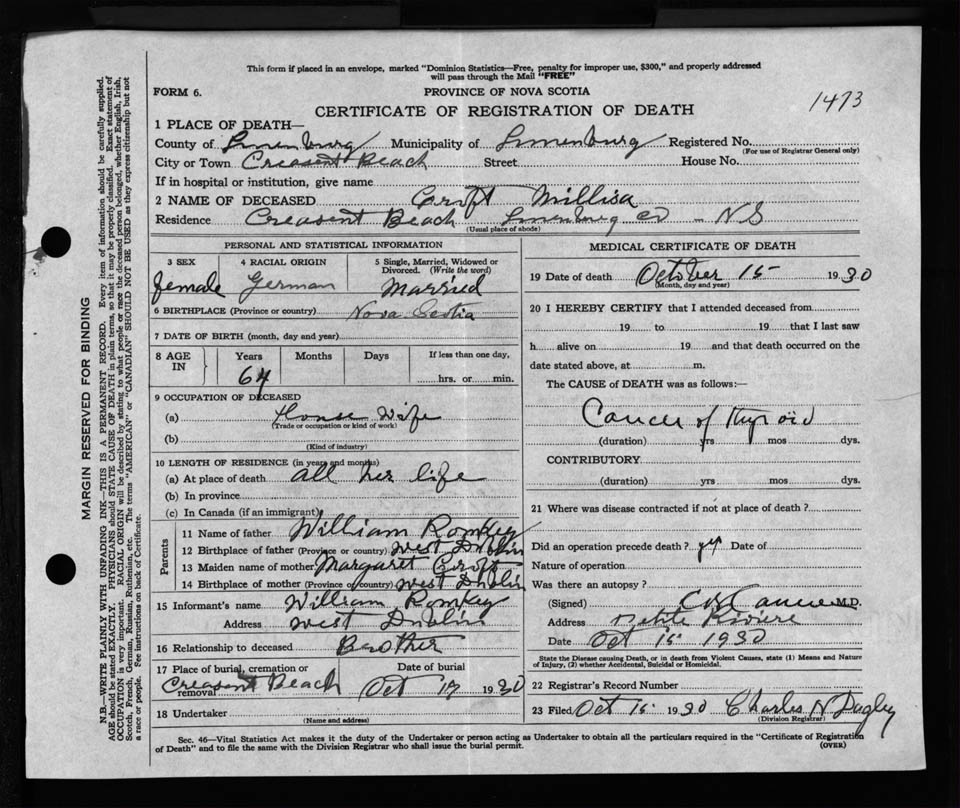 This form if placed in an envelope, marked "Dominion Statistics—Free, penalty for improper use, $300," and properly addressed
will pass through the Mail "FREE"
FORM 6.
PROVINCE OF NOVA SCOTIA
1473
CERTIFICATE OF REGISTRATION OF DEATH
1 PLACE OF DEATH—
County of Lunenburg Municipality of Lunenburg Registered No.
(For use of Registrar General only)
City or Town Creasent Beach Street House No.
If in hospital or institution, give name
2 NAME OF DECEASED Croft Millisa
Residence Creasent Beach Lunenburg co – NS
(Usual place of abode)
PERSONAL AND STATISTICAL INFORMATION
3 SEX
female
4 RACIAL ORIGIN
German
5 Single, Married, Widowed or
Divorced. (Write the word)
Married
6 BIRTHPLACE (Province or country) Nova Scotia
7 DATE OF BIRTH (month, day and year)
8 AGE
IN
Years Months Days If less than one day,
64 hrs. or min.
9 OCCUPATION OF DECEASED
(a) House Wife
(Trade or occupation or kind of work)
(b)
(Kind of industry)
10 LENGTH OF RESIDENCE (in years and months)
(a) At place of death all her life
(b) In province
(c) In Canada (if an immigrant)
Parents
11 Name of father William Romkey
12 Birthplace of father (Province or country) West Dublin
13 Maiden name of mother Margaret Croft
14 Birthplace of mother (Province or country) West Dublin
15 Informant's name William Romkey
Address West Dublin
16 Relationship to deceased Brother
17 Place of burial, cremation or
removal Creasent Beach
Date of burial
Oct 17 1930
18 Undertaker
(Name and address)
MEDICAL CERTIFICATE OF DEATH
19 Date of death October 15 1930
(Month, day and year)
20 I HEREBY CERTIFY that I attended deceased from
19 to 19 that I last saw
h alive on 19 and that death occurred on the
date stated above, at m.
The CAUSE of DEATH was as follows:—
Cancer of thyroid
(duration) yrs mos dys.
CONTRIBUTORY
(duration) yrs mos dys.
21 Where was disease contracted if not at place of death?
Did an operation precede death? yes Date of
Nature of operation
Was there an autopsy?
(Signed) M.D.
Address Petite Riviere
Date Oct 15 1930
State the Disease causing Death, or in death from Violent Causes, state (1) Means and Nature
of Injury, (2) whether Accidental, Suicidal or Homicidal.
22 Registrar's Record Number
23 Filed Oct 15 1930 Charles N Dagley
(Division Registrar)
Sec. 46—Vital Statistics Act makes it the duty of the Undertaker or person acting as Undertaker to obtain all the particulars required in the "Certificate of Registration
of Death" and to file the same with the Division Registrar who shall issue the burial permit. (OVER)
MARGIN RESERVED FOR BINDING
N.B.—WRITE PLAINLY WITH UNFADING INK—THIS IS A PERMANENT RECORD. Every item of information should be carefully supplied.
AGE should be stated EXACTLY. PHYSICIANS should STATE CAUSE OF DEATH in plain terms, so that it may be properly classified. Exact statement of
OCCUPATION is very important. RACIAL ORIGIN will be described by stating to what people or race the deceased person belonged, whether English, Irish,
Scotch, French, German, Russian, Ruthenian, etc. The terms "AMERICAN" or "CANADIAN" SHOULD NOT BE USED as they express citizenship but not
a race or people. See instructions on back of Certificate.